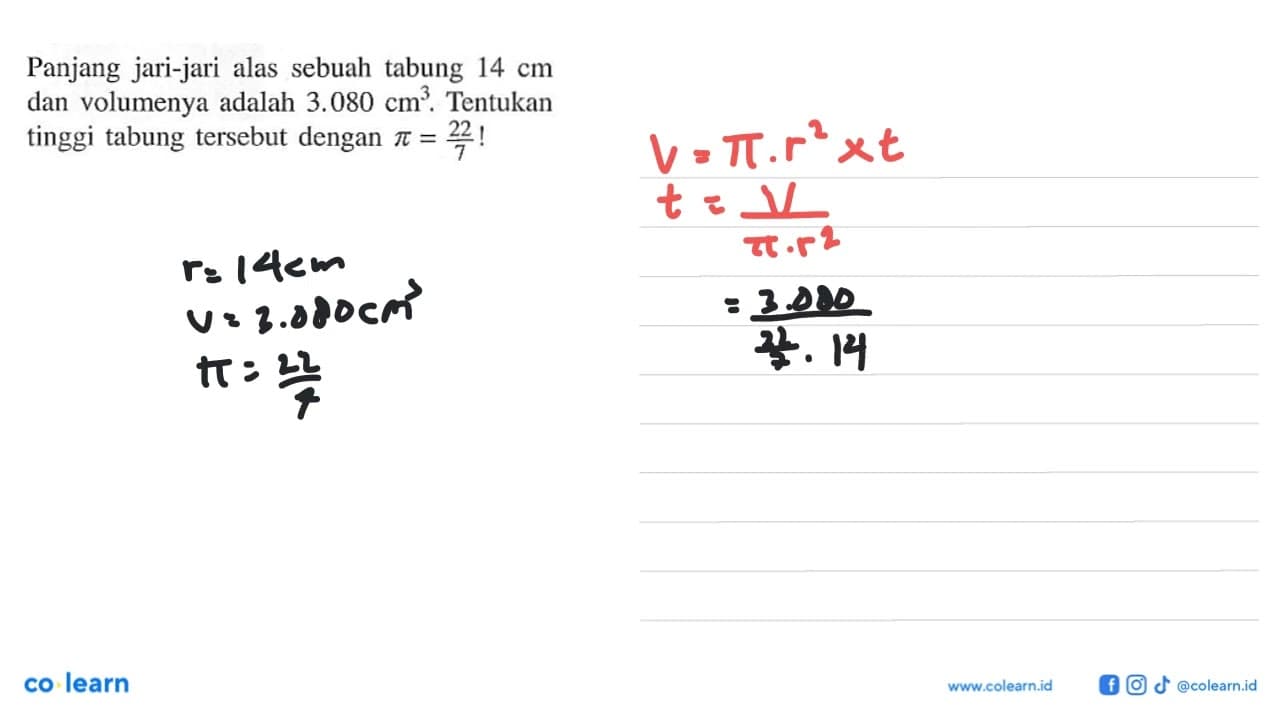 Panjang jari-jari alas sebuah tabung 14 cm
dan volumenya adalah 3.080 cm³. Tentukan
tinggi tabung tersebut dengan π = 22/7!
r = 14 cm
V = 3.080 cm³
π = 22/7
V = π.r² × t
t = V/π.r²
= 3.080/22/7 . 14
co learn
www.colearn.id
@colearn.id